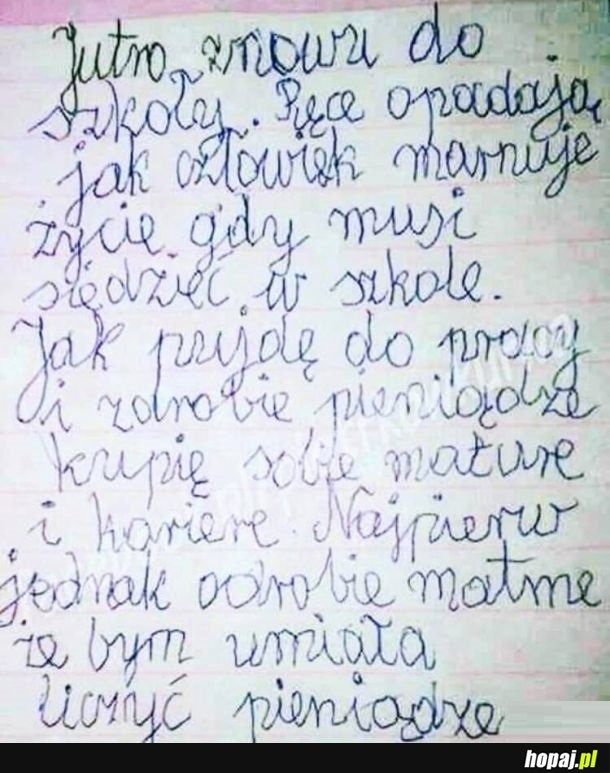 Jutro znowu do
szkoły. Ręce opadają
jak człowięk marnuje
życię gdy musi
siędzięć w szkole.
Jak pujdę do pracy
i zdrobie pieniądze
kupię sobie mature
i kariere. Najpierw
jednak odrobie matme
że bym umiała
liczyć pieniądze
hopaj.pl